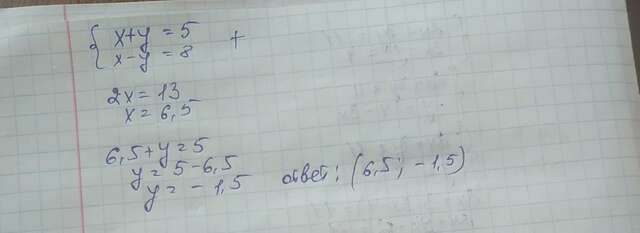 x+y=5 +
x-y=8
2x=13
x=6,5
6,5+y=5
y=5-6,5
y=-1,5
ответ: (6,5; -1,5)